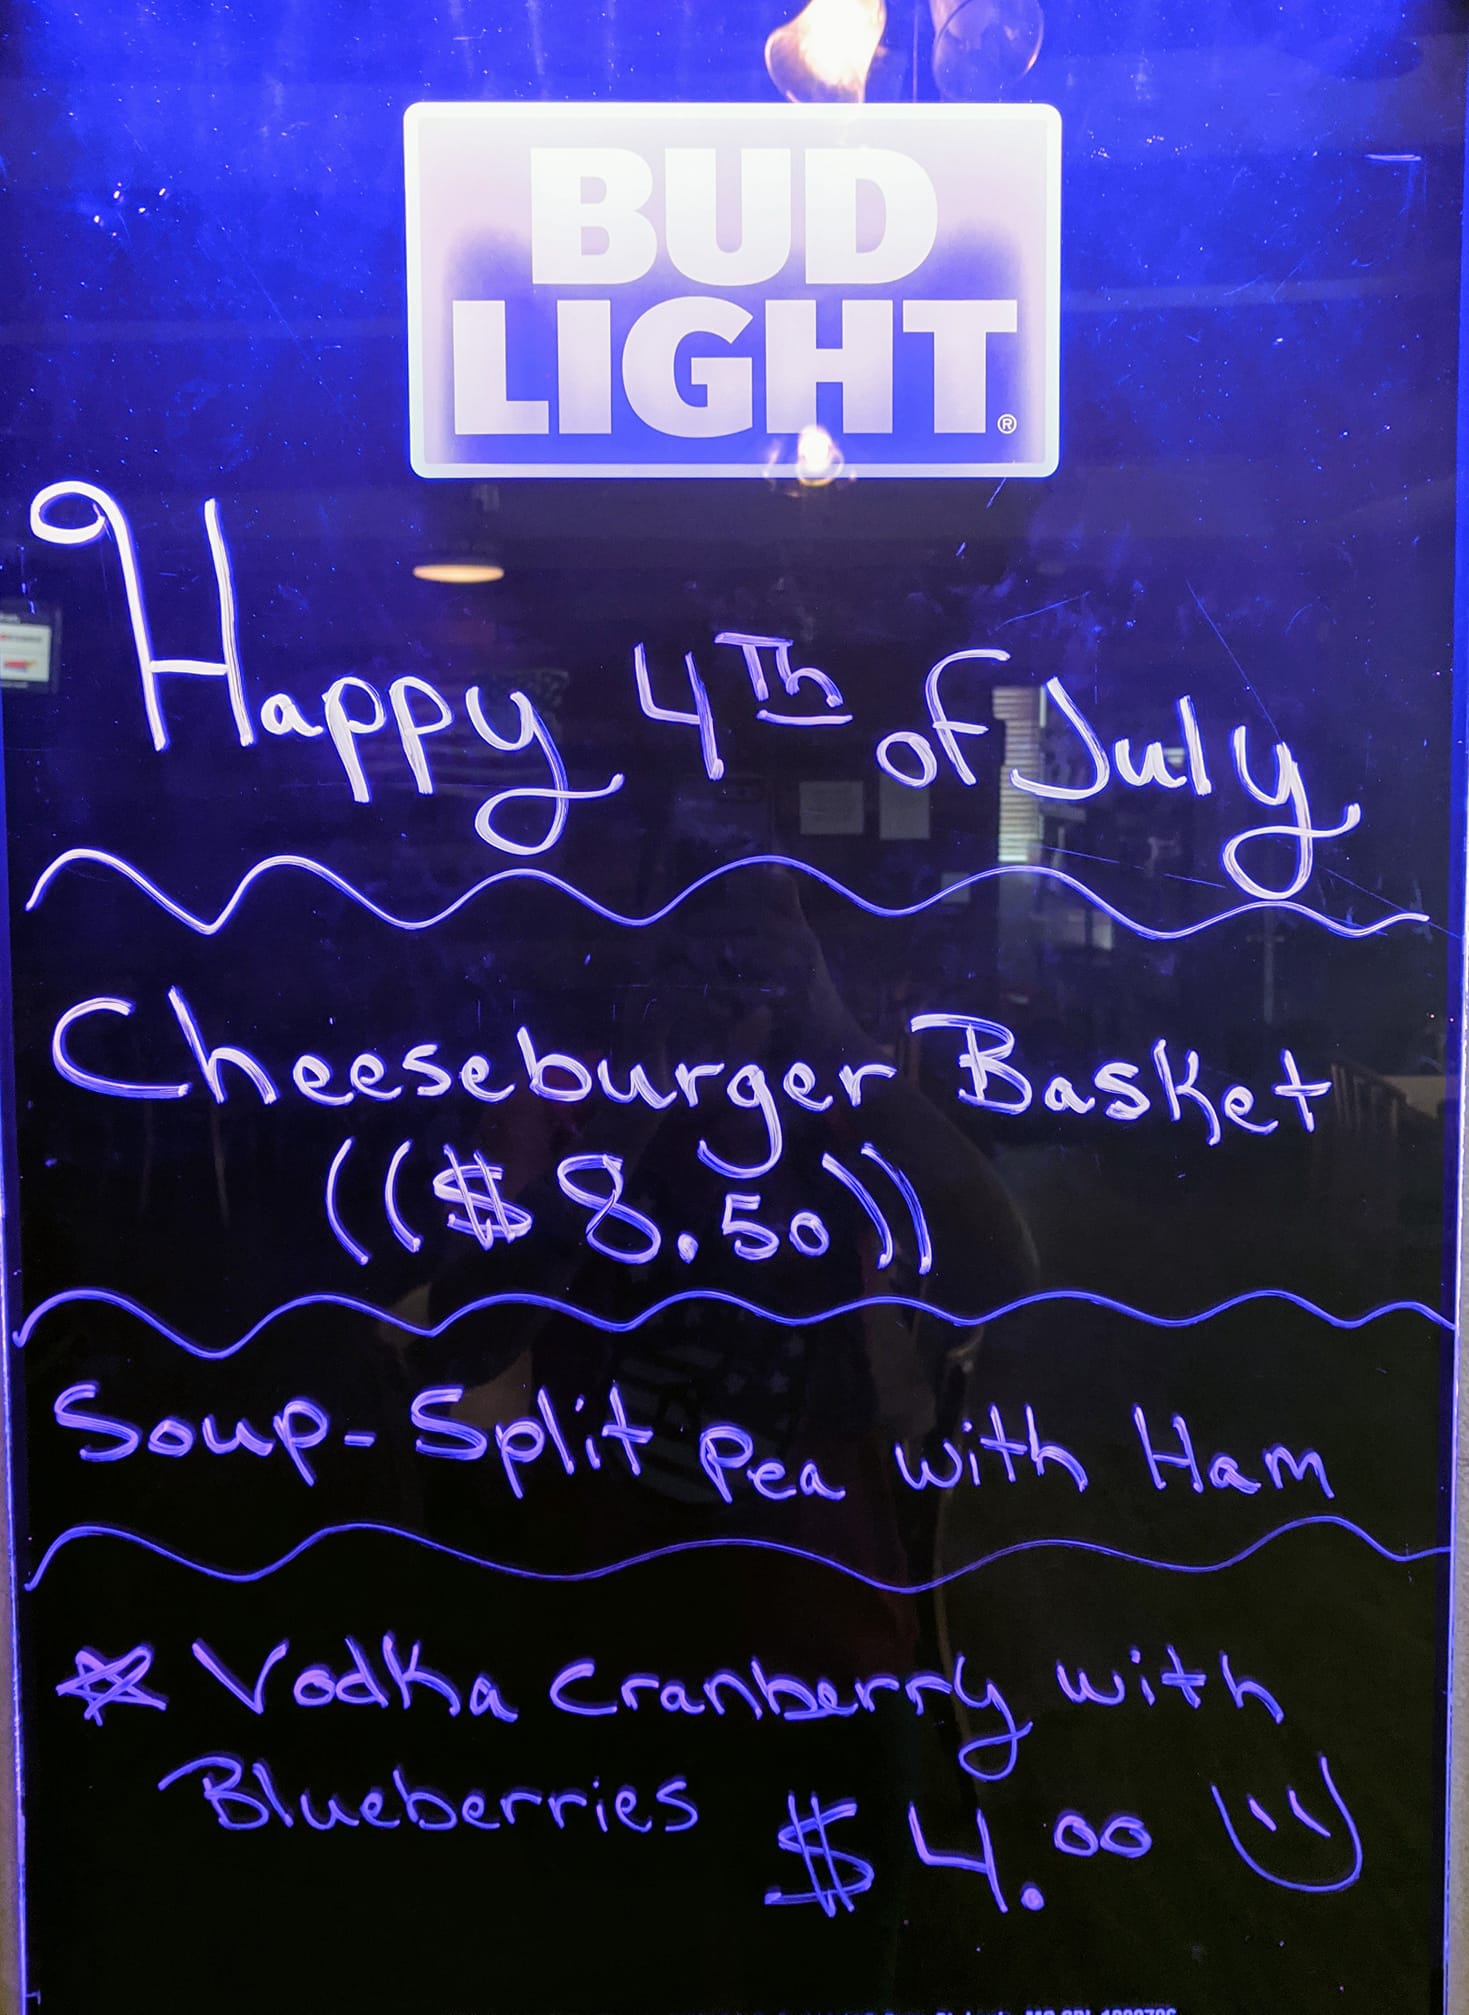 BUD
LIGHT®
Happy 4Th of July
Cheeseburger Basket
(($8.50))
Soup-Split Pea with Ham
Vodka Cranberry with
Blueberries $4.00